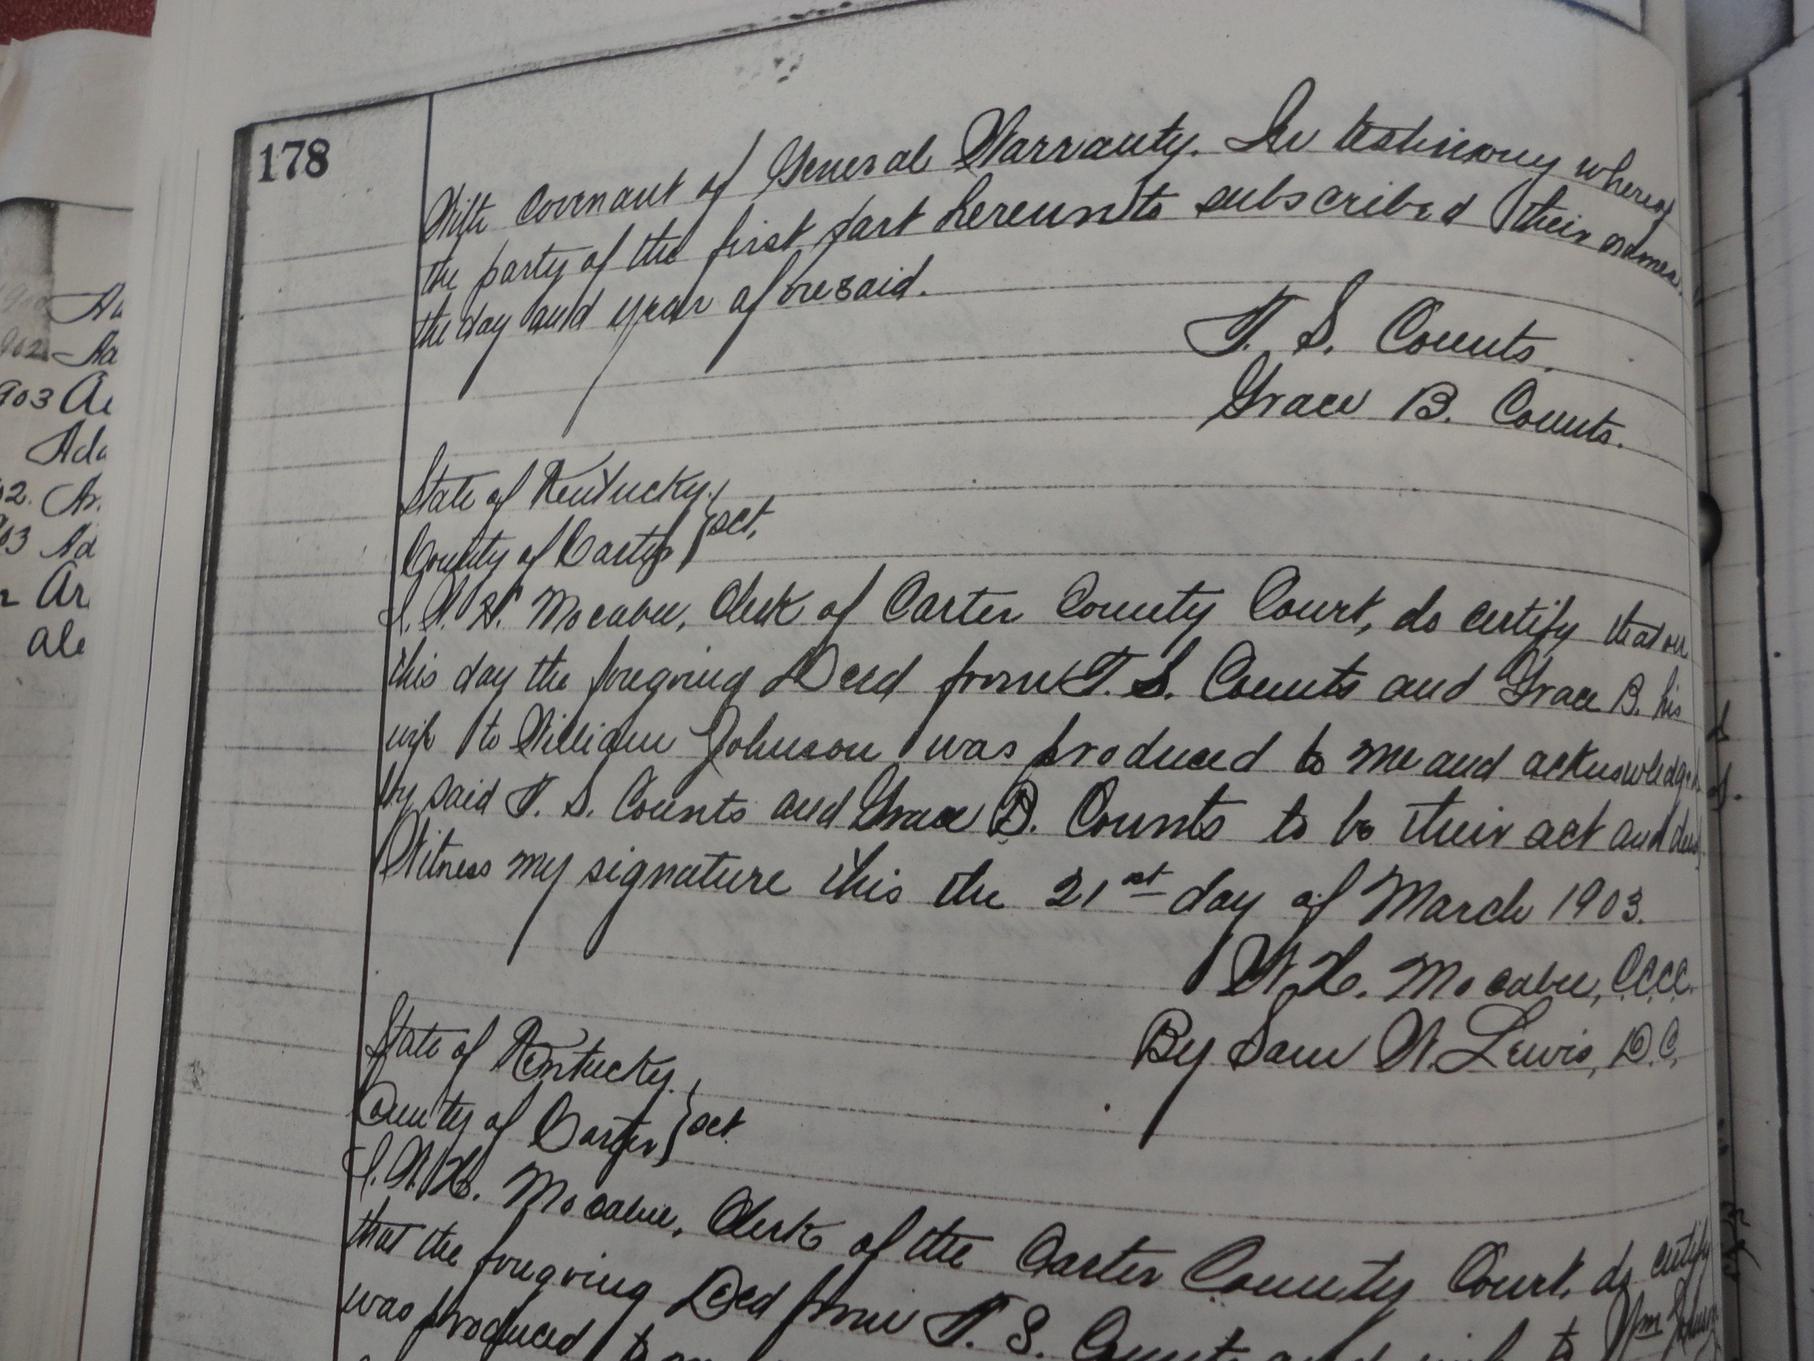 178
With covenant of General Warranty. In testimony whereof
the party of the first part hereunto subscribed their names
the day and year aforesaid.
T. S. Counts.
Grace B. Counts.
State of Kentucky,
County of Carter } sct.
I, W. H. Mocabee, Clerk of Carter County Court, do certify that on
this day the foregoing Deed from T. S. Counts and Grace B. his
wife to William Johnson was produced to me and acknowledged
by said T. S. Counts and Grace B. Counts to be their act and deed,
Witness my signature this the 21st day of March 1903.
W. H. Mocabee, C.C.C.C.
By Sam W. Lewis, D.C.
State of Kentucky,
County of Carter, } sct.
I, W. H. Mocabee, Clerk of the Carter County Court, do certify
that the foregoing Deed from T. S. Counts and wife to Wm Johnson
was produced to
903
Ada